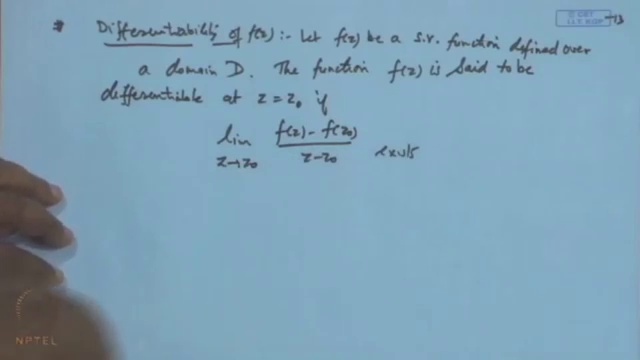 * Differentiability of f(z) :- Let f(z) be a s.v. function defined over
a domain D. The function f(z) is said to be
differentiable at z = z₀ if
lim z→z₀ f(z) - f(z₀) / z - z₀ exists
© CET
I.I.T. KGP
-13
NPTEL